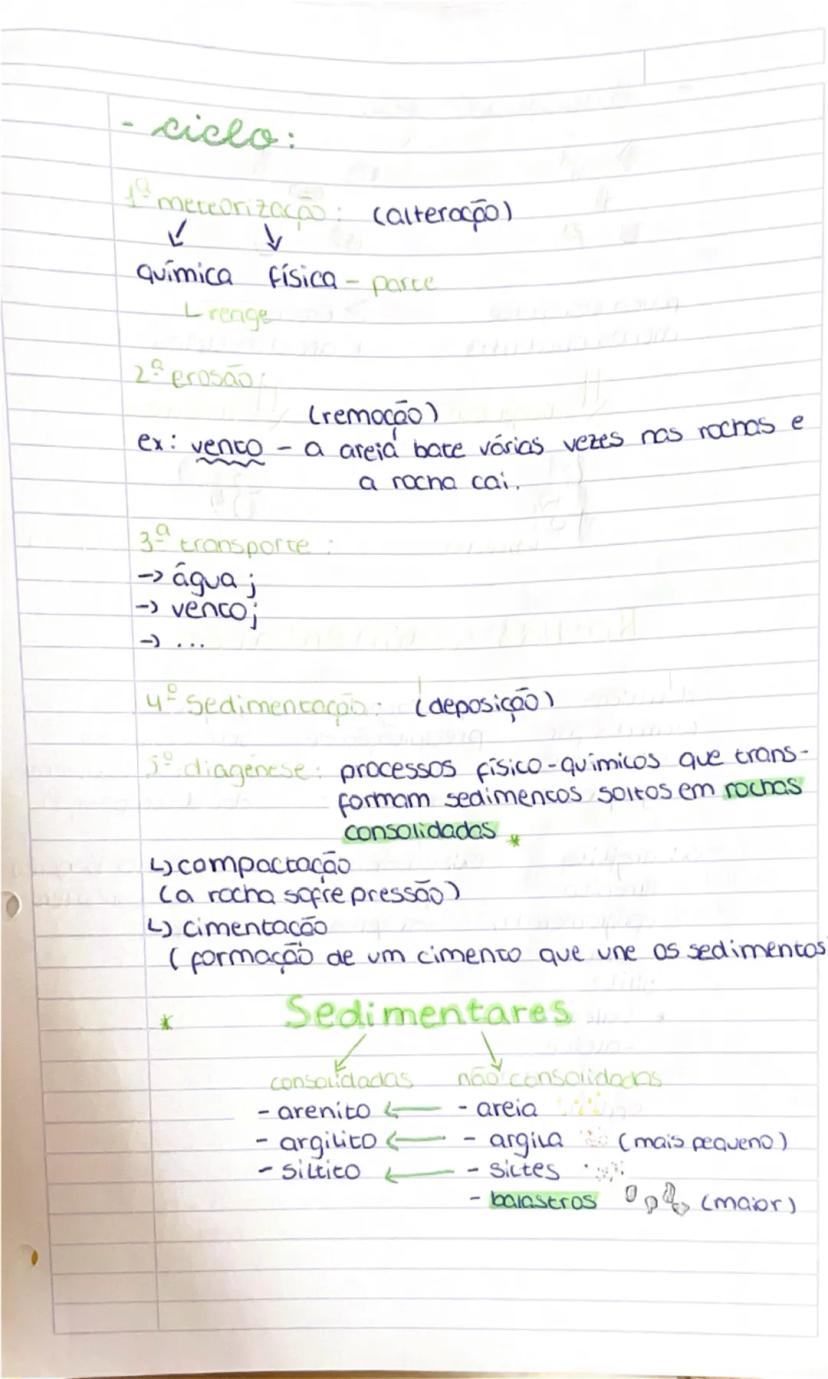 - ciclo:
1ª meteorização: (alteração)
química física - parte
reage
2ª erosão:
(remoção)
ex: vento - a areia bate várias vezes nas rochas e
a rocha cai.
3ª transporte:
-> água;
-> vento;
-> ...
4º Sedimentação: (deposição)
5º diagénese: processos físico-químicos que trans-
formam sedimentos soltos em rochas
consolidadas *
↳ compactação
(a rocha sofre pressão)
↳ cimentação
(formação de um cimento que une os sedimentos
* Sedimentares
consolidadas não consolidadas
- arenito ← - areia
- argilito ← - argila (mais pequeno)
- siltito ← - siltes
- balastros (maior)